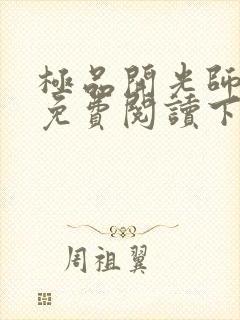 極品開光師
免費閱讀下
周祖翼